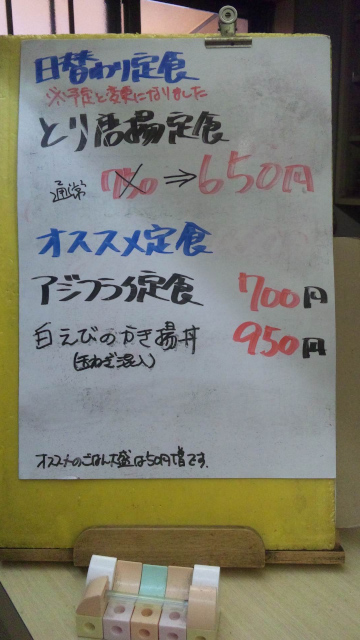 日替わり定食
※予定と変更になりました
とり唐揚定食
通常 750 ⇒ 650円
オススメ定食
アジフライ定食 700円
白えびのかき揚丼 950円
(玉ねぎ混入)
オススメのごはん大盛は50円増です。